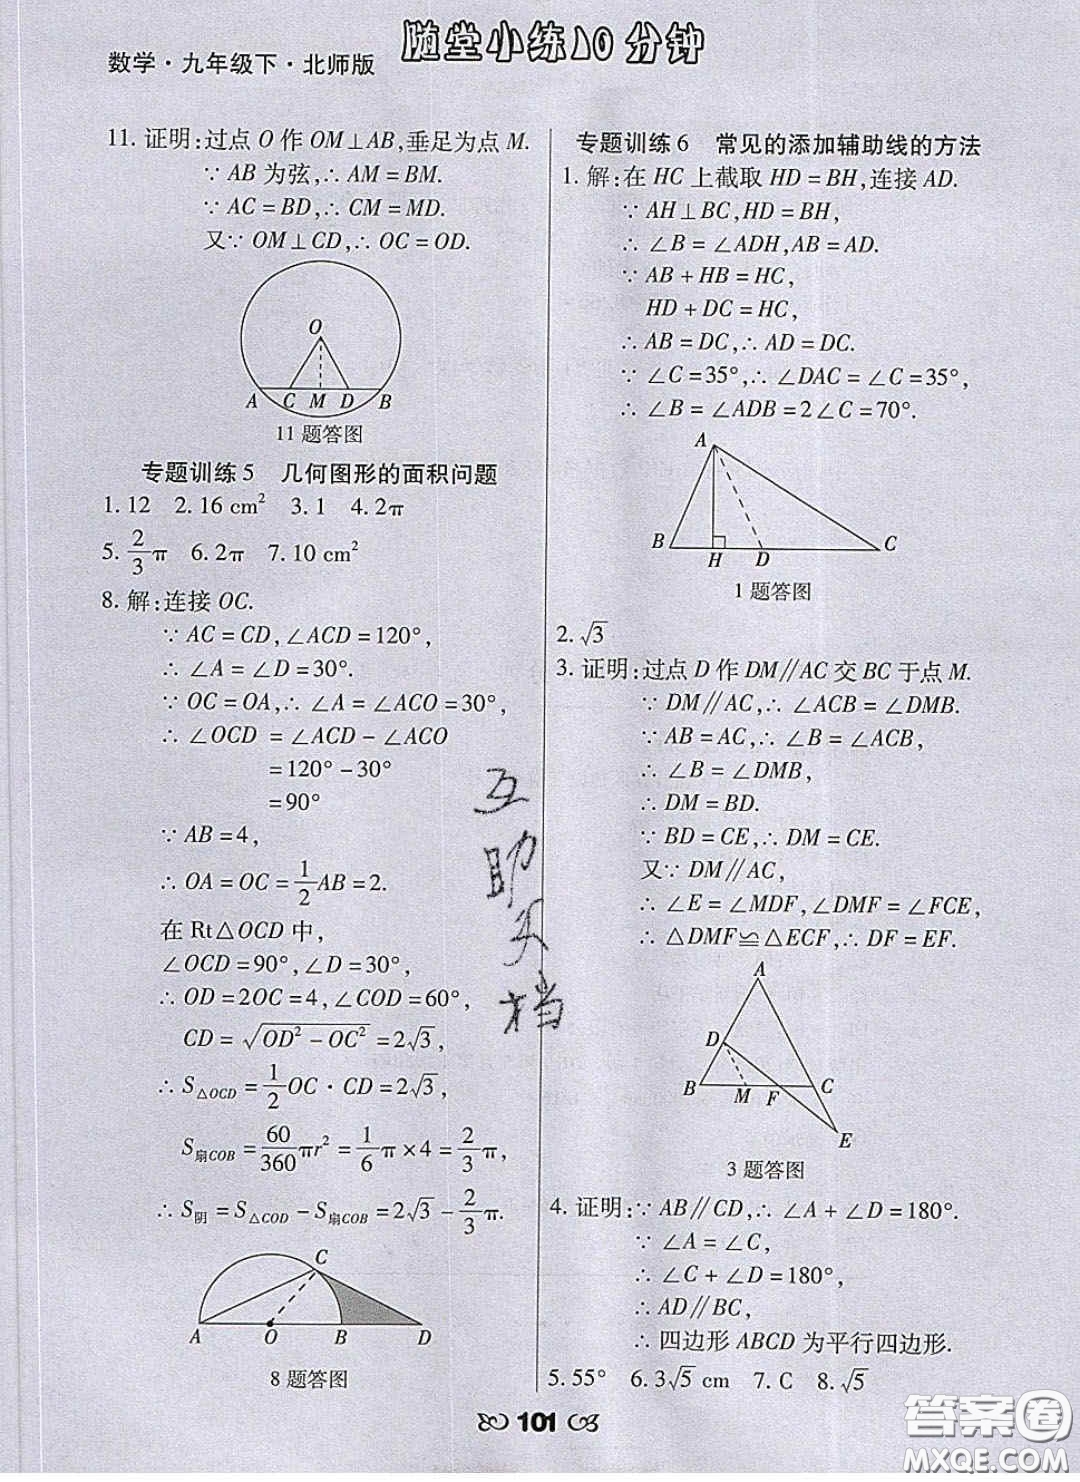 数学·九年级下·北师版
随堂小练10分钟
11. 证明:过点 O 作 OM⊥AB,垂足为点 M.
∵ AB 为弦,∴ AM=BM.
∵ AC=BD,∴ CM=MD.
又∵ OM⊥CD,∴ OC=OD.
O
A C M D B
11 题答图
专题训练 5 几何图形的面积问题
1. 12 2. 16 cm² 3. 1 4. 2π
5. 2/3 π 6. 2π 7. 10 cm²
8. 解:连接 OC.
∵ AC=CD,∠ACD=120°,
∴ ∠A=∠D=30°.
∵ OC=OA,∴ ∠A=∠ACO=30°,
∴ ∠OCD =∠ACD-∠ACO
=120°-30°
=90°
∵ AB=4,
∴ OA=OC=1/2 AB=2.
在 Rt△OCD 中,
∠OCD=90°,∠D=30°,
∴ OD=2OC=4,∠COD=60°,
CD=√(OD²-OC²)=2√3.
∴ S△OCD=1/2 OC·CD=2√3,
S扇COB=60/360 πr²=1/6 π×4=2/3 π,
∴ S阴=S△COD-S扇COB=2√3-2/3 π.
C
A O B D
8 题答图
专题训练 6 常见的添加辅助线的方法
1. 解:在 HC 上截取 HD=BH,连接 AD.
∵ AH⊥BC,HD=BH,
∴ ∠B=∠ADH,AB=AD.
∵ AB+HB=HC,
HD+DC=HC,
∴ AB=DC,∴ AD=DC.
∵ ∠C=35°,∴ ∠DAC=∠C=35°,
∴ ∠B=∠ADB=2∠C=70°.
A
B H D C
1 题答图
2. √3
3. 证明:过点 D 作 DM∥AC 交 BC 于点 M.
∵ DM∥AC,∴ ∠ACB=∠DMB.
∵ AB=AC,∴ ∠B=∠ACB,
∴ ∠B=∠DMB,
∴ DM=BD.
∵ BD=CE,∴ DM=CE.
又∵ DM∥AC,
∴ ∠E=∠MDF,∠DMF=∠FCE,
∴ △DMF≌△ECF,∴ DF=EF.
A
D
B M F C
E
3 题答图
4. 证明:∵ AB∥CD,∴ ∠A+∠D=180°.
∵ ∠A=∠C,
∴ ∠C+∠D=180°,
∴ AD∥BC,
∴ 四边形 ABCD 为平行四边形.
5. 55° 6. 3√5 cm 7. C 8. √5
互
助
文
档
101
答案圈
MXQE.COM